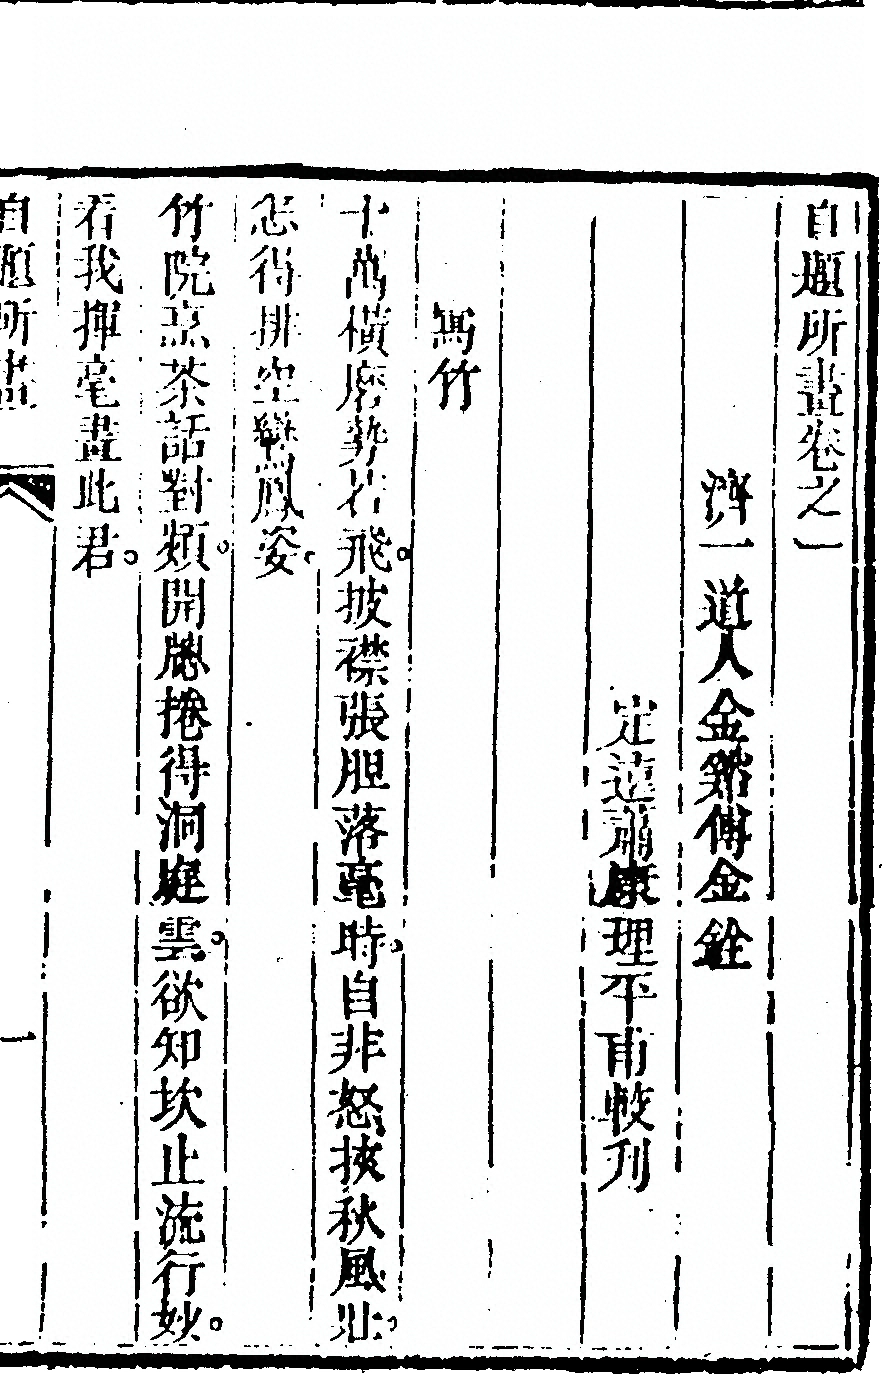 自題所畫卷之一
濟一道人金谿傅金銓
定遠蕭康理平甫較刊
寫竹
十萬橫磨勢若飛披襟張胆落毫時自非怒挾秋風壯
怎得排空鸞鳳姿
竹院烹茶話對頻開牕捲得洞庭雲欲知坎止流行妙
看我揮毫畫此君
自題所畫
一